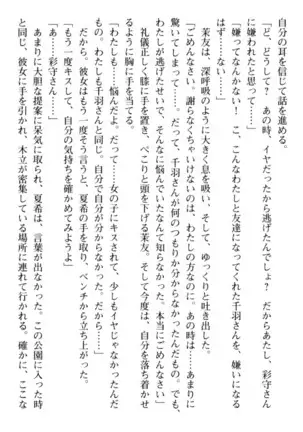 自分の耳を信じて話を進める。
「ど、どうして？ あの時、イヤだったから逃げたんでしょ？ だからあたし、彩守さん
に嫌われたと思って――」
「嫌ってなんかいません……！ こ、こんなわたしと友達になってくれた千羽さんを、嫌いになる
はず……ない……」
茉友は、深呼吸のように大きく息を吸い、そして、ゆっくりと吐き出した。
「ごめんなさい。謝らなくちゃいけないのは、わたしの方なのに。あの時は……あまりに
驚いてしまって……。だって、千羽さんが何のつもりか分からなかったんだもの。でも、
わたしが逃げたせいで、そんなに悩んでいたなんて知らなかった。本当にごめんなさい」
礼儀正しく膝に手を置き、ぺこりと頭を下げる茉友。そして今度は、自分を落ち着かせ
るように胸に手を当てる。
「わたしも……悩んだよ。だって……女の子にキスされて、少しもイヤじゃなかったんだ
もの。わたしも千羽さんと同じ。自分で自分が分からなくなった。だから……」
だから。彼女はもう一度そう言うと、夏希の手を取り、ベンチから立ち上がった。
「もう一度キスして、自分の気持ちを確かめてみようよ」
「え……彩守……さん？」
あまりに大胆な提案に呆気に取られ、夏希は、言葉が出なかった。この公園に入った時
と同じ、彼女に手を引かれ、木立が密集している場所に連れて行かれる。確かに、ここな